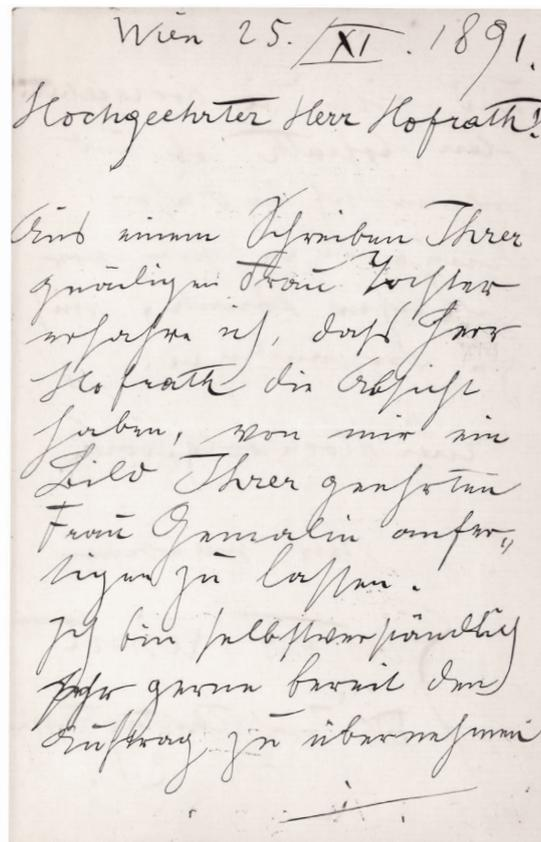 Wien 25. XI. 1891.
Hochgeehrter Herr Hofrath!
Aus einem Schreiben Ihrer
gnädigen Frau Tochter
erfahre ich, dass Herr
Hofrath die Absicht
haben, von mir ein
Bild Ihrer geehrten
Frau Gemalin anfer„
tigen zu lassen.
Ich bin selbstverständlich
sehr gerne bereit den
Auftrag zu übernehmen